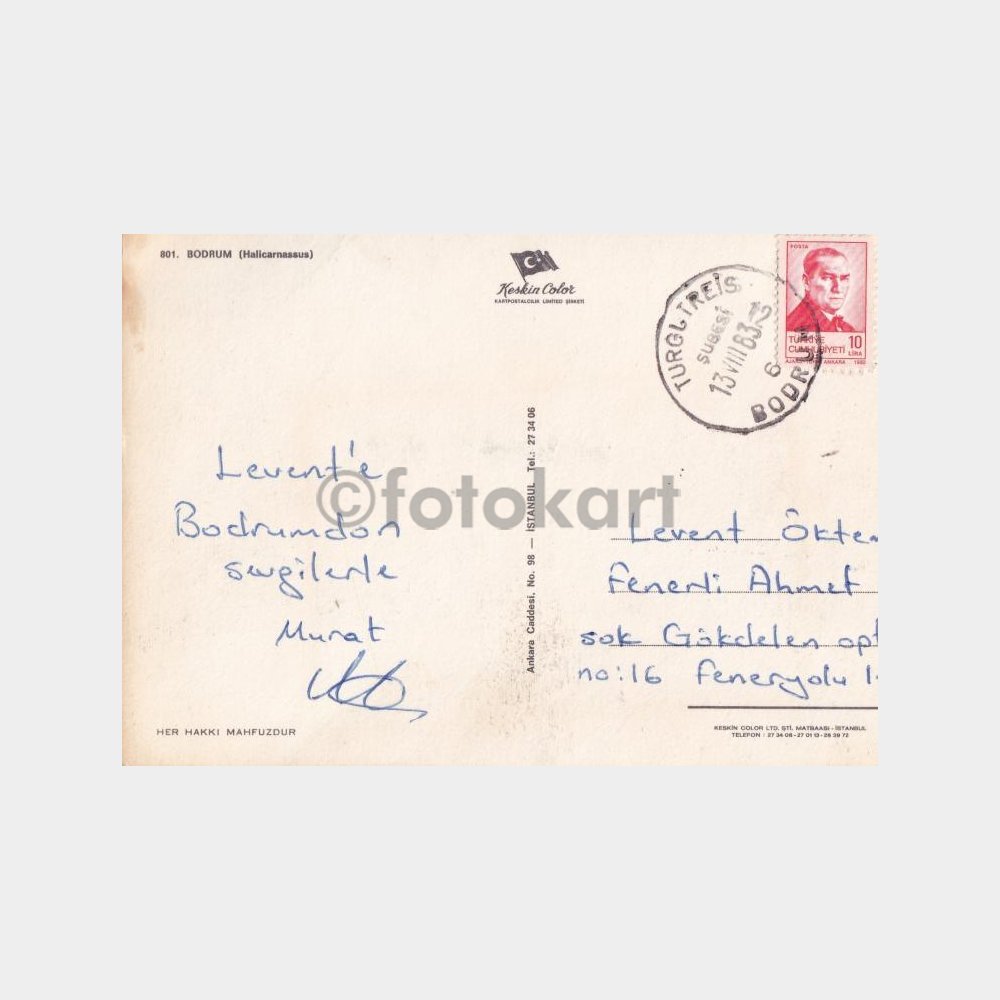 801. BODRUM (Halicarnassus)
Keskin Color
KARTPOSTALCILIK LIMITED ŞİRKETİ
POSTA
TÜRKİYE
CUMHURİYETİ 10
LİRA
ANKARA 1982
TURGUTREİS
ŞUBESİ
13 VIII 83 12
6
BODRUM
©fotokart
Levent'e
Bodrumdan
sevgilerle
Murat
Ankara Caddesi, No. 98 — İSTANBUL Tel.: 27 34 06
Levent Öktem
Fenerli Ahmet
sok Gökdelen apt
no:16 Feneryolu
HER HAKKI MAHFUZDUR
KESKİN COLOR LTD. ŞTİ. MATBAASI - İSTANBUL
TELEFON : 27 34 06 - 27 01 13 - 28 39 72